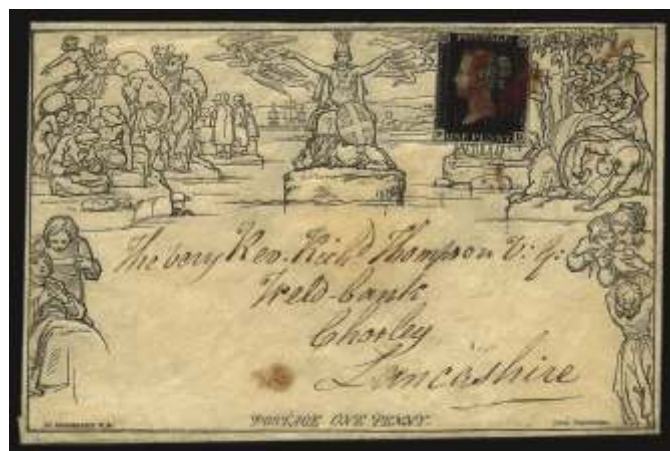 POSTAGE
ONE PENNY
The very Rev. Richd Thompson V: G:
Weld-bank
Chorley
Lancashire
POSTAGE ONE PENNY.